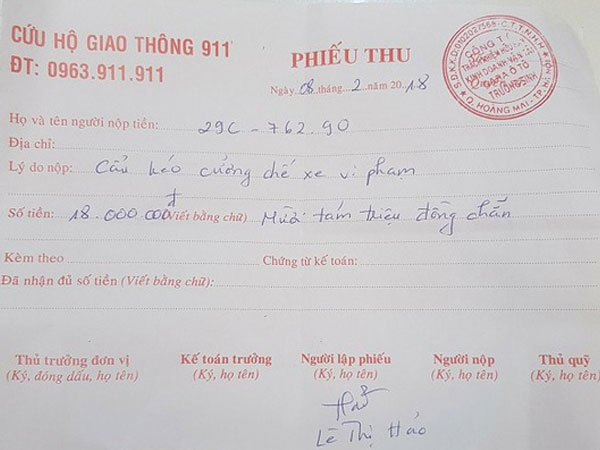 CỨU HỘ GIAO THÔNG 911
ĐT: 0963.911.911
PHIẾU THU
Ngày 08 tháng 2 năm 2018
S.Đ.K.K.D:0102027568-C.T.T.N.H.H
CÔNG TY
KINH DOANH VẬN TẢI
GARA Ô TÔ
TRƯỜNG SINH
Q. HOÀNG MAI - TP. HÀ NỘI
Họ và tên người nộp tiền: 29C - 762.90
Địa chỉ:
Lý do nộp: Cẩu kéo cưỡng chế xe vi phạm
Số tiền: 18.000 000đ (Viết bằng chữ) Mười tám triệu đồng chẵn
Kèm theo Chứng từ kế toán:
Đã nhận đủ số tiền (Viết bằng chữ):
Thủ trưởng đơn vị Kế toán trưởng Người lập phiếu Người nộp Thủ quỹ
(Ký, đóng dấu, họ tên) (Ký, họ tên) (Ký, họ tên) (Ký, họ tên) (Ký, họ tên)
Lê Thị Hảo